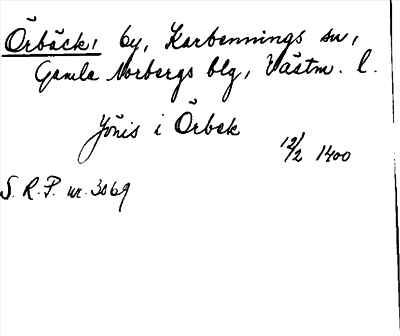 Örbäck, by, Karbennings sn,
Gamla Norbergs blg, Västm. l.
Jönis i Örbek
12/2 1400
S. R. P. nr. 3069